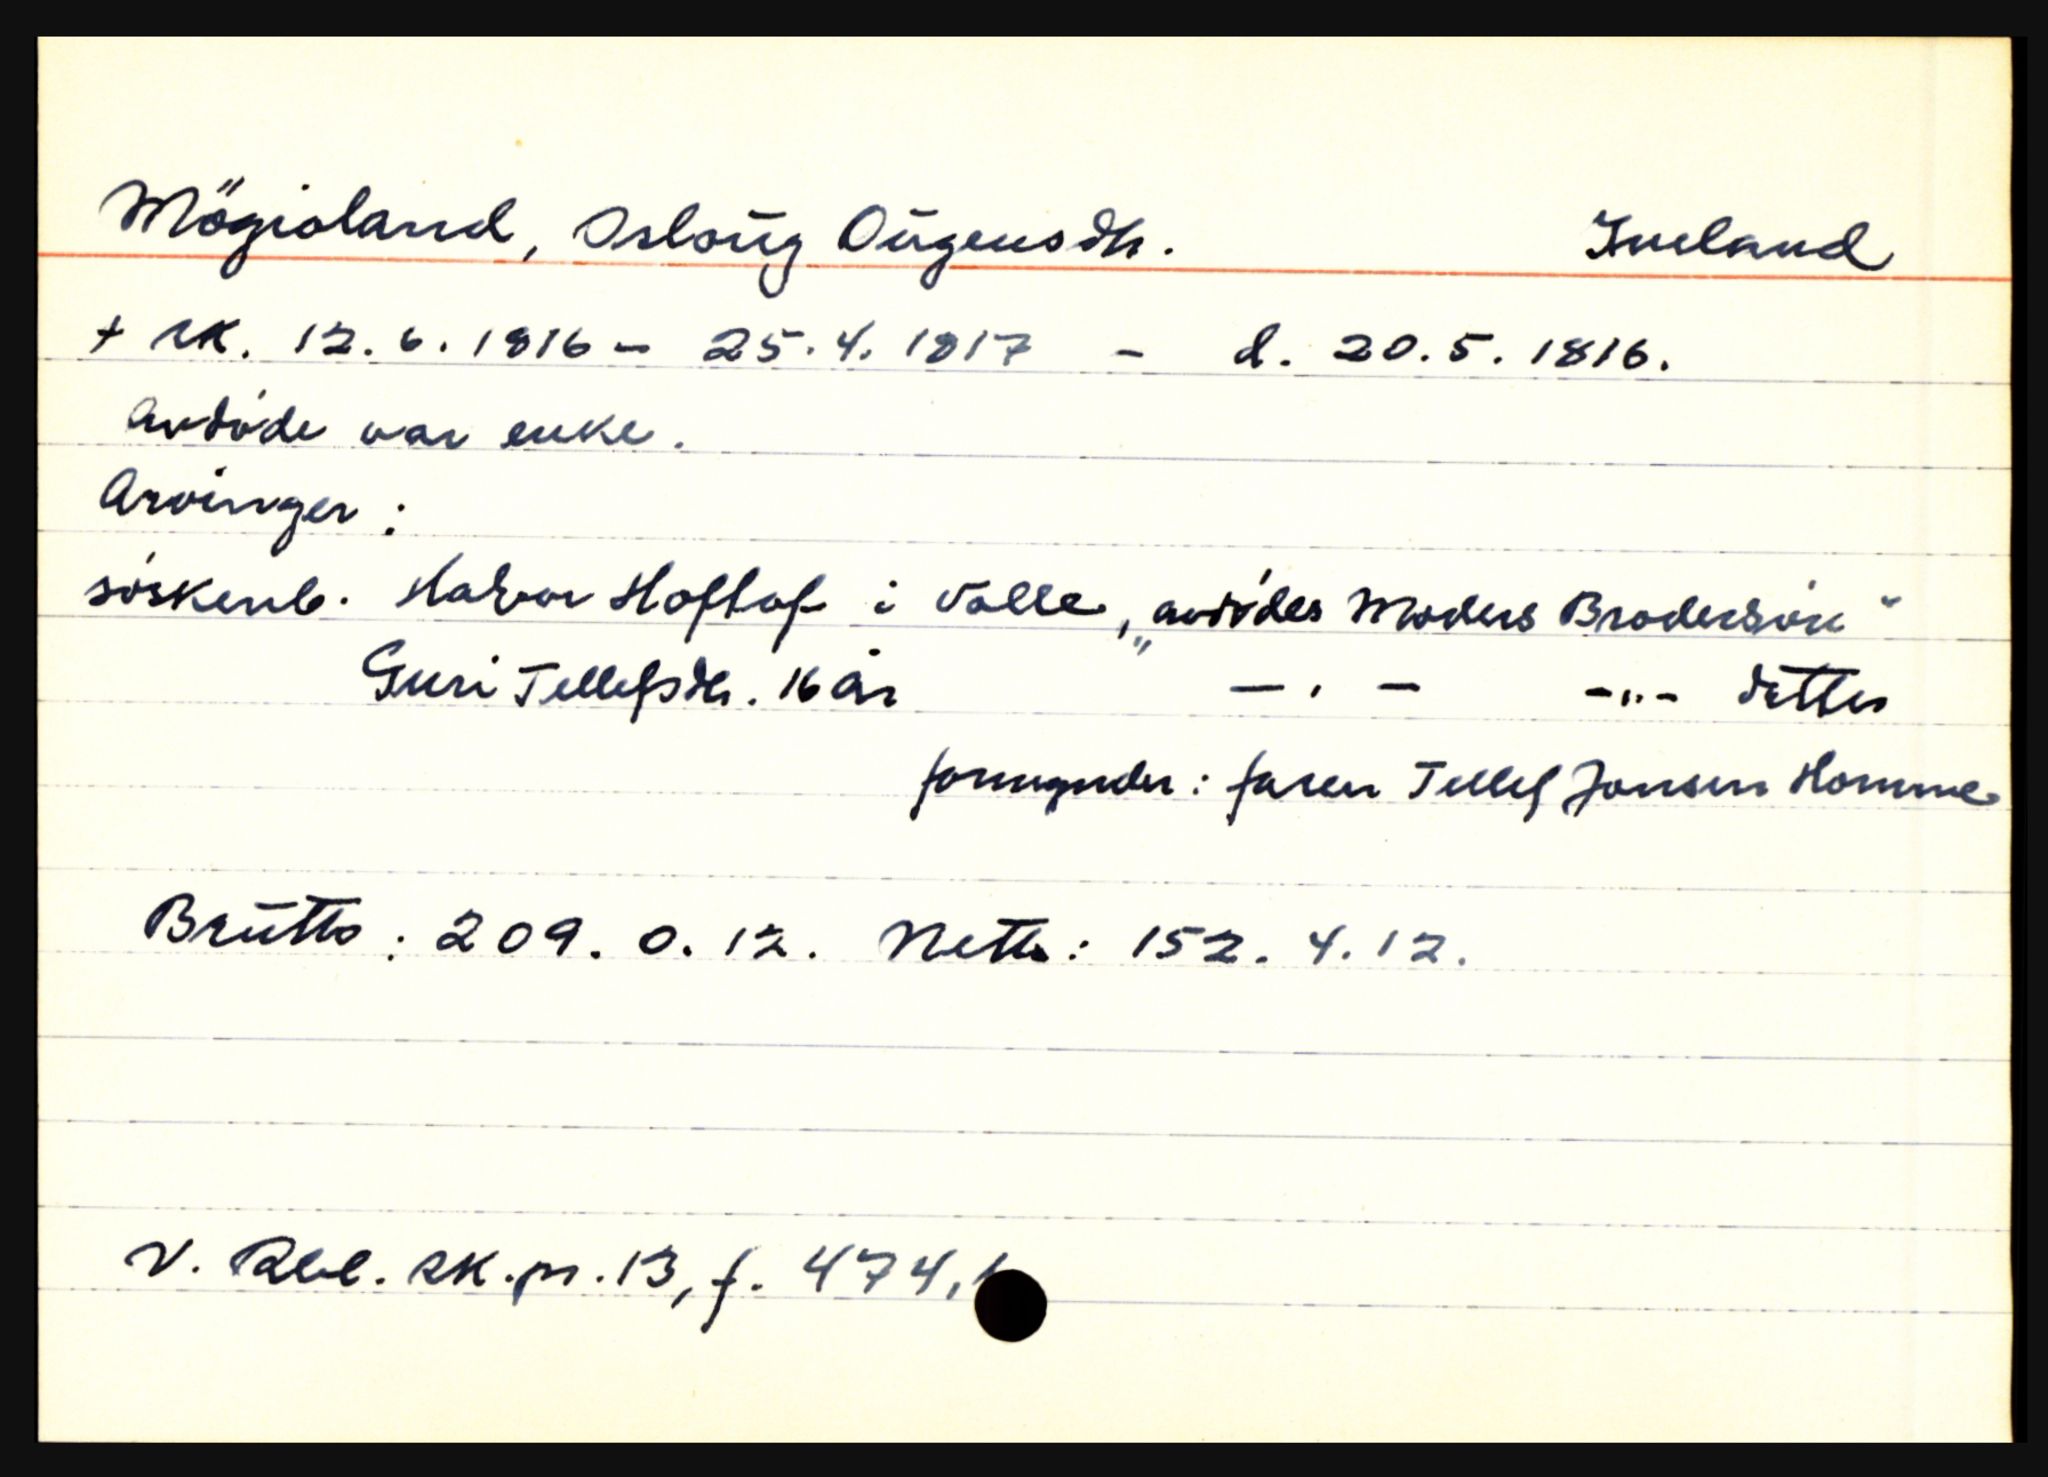 Mögioland, Osloug Ougensdtr. Iveland
+ sk. 12.6.1816 - 25.4.1817 - d. 20.5.1816.
Avdöde var enke.
Arvinger:
söskenb. Halvor Hoftof i Valle, „avdödes Moders Brodersön“
Guri Tellefsdtr. 16 år — „ — -„- datter
formynder: faren Tellef Jonsen Homme
Brutto: 209. 0. 12. Netto: 152. 4. 12.
V. Rbl. sk.pr. 13, f. 474,